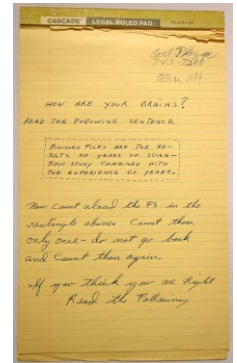 CASCADE® LEGAL RULED PAD
743-7200
HOW ARE YOUR BRAINS?
READ THE FOLLOWING SENTENCE.
FINISHED FILES ARE THE RE-
SULTS OF YEARS OF SCIEN-
TIFIC STUDY COMBINED WITH
THE EXPERIENCE OF YEARS.
Now Count aloud the F's in the
rectangle above. Count them
only once - do not go back
and Count them again.
If you think you are right
Read the Following